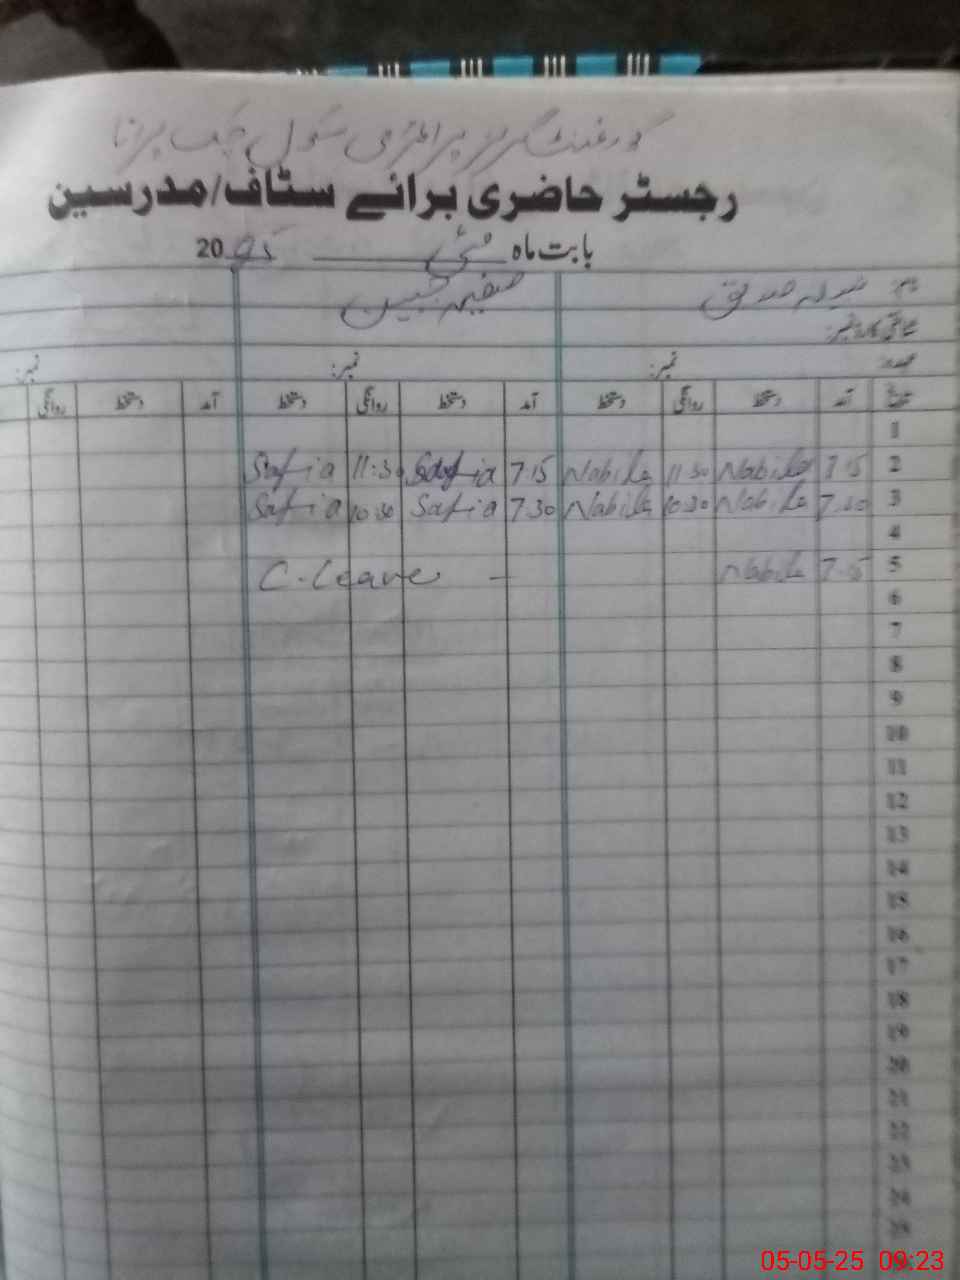 گورنمنٹ گرلز پرائمری سکول چک
رجسٹر حاضری برائے سٹاف/مدرسین
بابت ماہ مئی 20
نام: نبیلہ صدیق صفیہ جبیں
شناختی کارڈ نمبر:
عہدہ: نمبر: نمبر: نمبر:
تاریخ آمد دستخط روانگی دستخط آمد دستخط روانگی دستخط آمد دستخط روانگی
1
2 7.15 Nabila 11.30 Nabila 7.15 Safia 11:30 Safia
3 7.30 Nabila 10.30 Nabila 7.30 Safia 10.30 Safia
4
5 7.15 Nabila - C-Leave
6
7
8
9
10
11
12
13
14
15
16
17
18
19
20
21
22
23
24
25
05-05-25 09:23